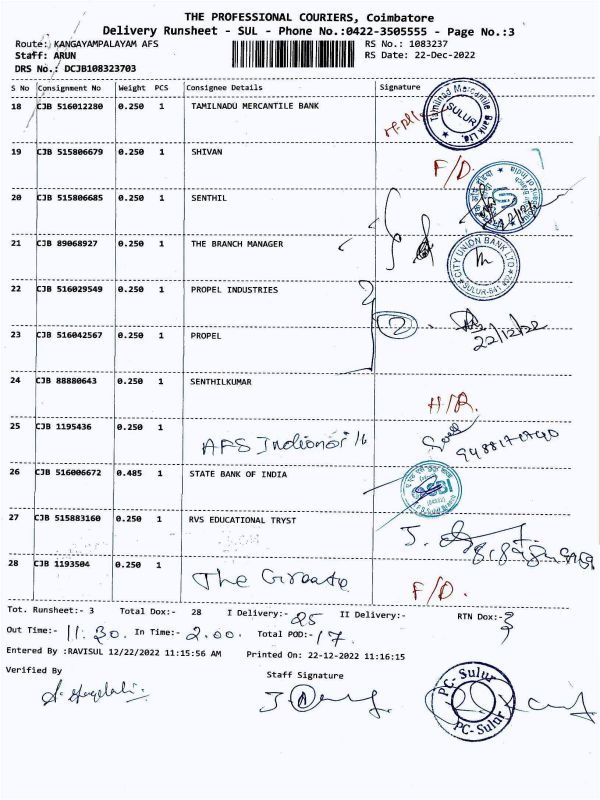 THE PROFESSIONAL COURIERS, Coimbatore
Delivery Runsheet - SUL - Phone No.:0422-3505555 - Page No.:3
Route: KANGAYAMPALAYAM AFS RS No.: 1083237
Staff: ARUN RS Date: 22-Dec-2022
DRS No.: DCJB108323703
S No Consignment No Weight PCS Consignee Details Signature
18 CJB 516012280 0.250 1 TAMILNADU MERCANTILE BANK Tamilnad Mercantile Bank Ltd. SULUR
19 CJB 515806679 0.250 1 SHIVAN F/D.
20 CJB 515806685 0.250 1 SENTHIL
21 CJB 89068927 0.250 1 THE BRANCH MANAGER CITY UNION BANK LTD SULUR-641 402
22 CJB 516029549 0.250 1 PROPEL INDUSTRIES
2. 22/12/22
23 CJB 516042567 0.250 1 PROPEL
24 CJB 88880643 0.250 1 SENTHILKUMAR
25 CJB 1195436 0.250 1
AFS
26 CJB 516006672 0.485 1 STATE BANK OF INDIA SBI
27 CJB 515883160 0.250 1 RVS EDUCATIONAL TRYST
28 CJB 1193504 0.250 1 The F/D.
Tot. Runsheet:- 3 Total Dox:- 28 I Delivery:- 25 II Delivery:- RTN Dox:- 3
Out Time:- 11.30. In Time:- 2.00. Total POD:- 17.
Entered By :RAVISUL 12/22/2022 11:15:56 AM Printed On: 22-12-2022 11:16:15
Verified By Staff Signature
PC-Sulur
PC-Sulur